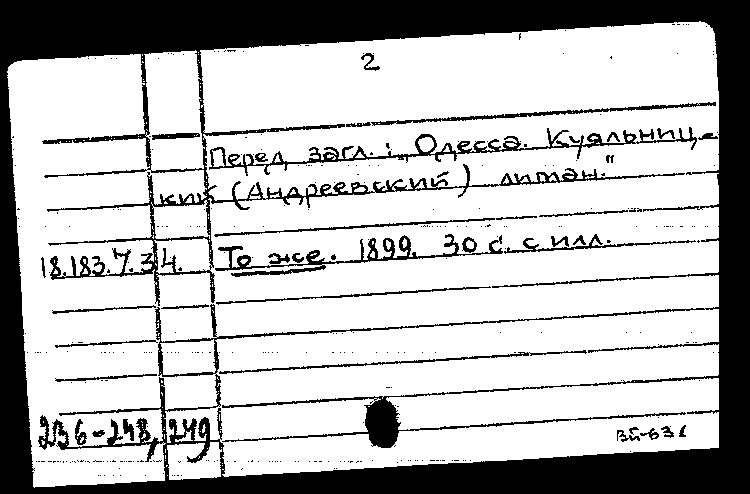 2
Перед загл.: „Одесса. Куяльниц-
кий (Андреевский) лиман."
18.183.7.34. То же. 1899. 30 с. с илл.
236-248, 249